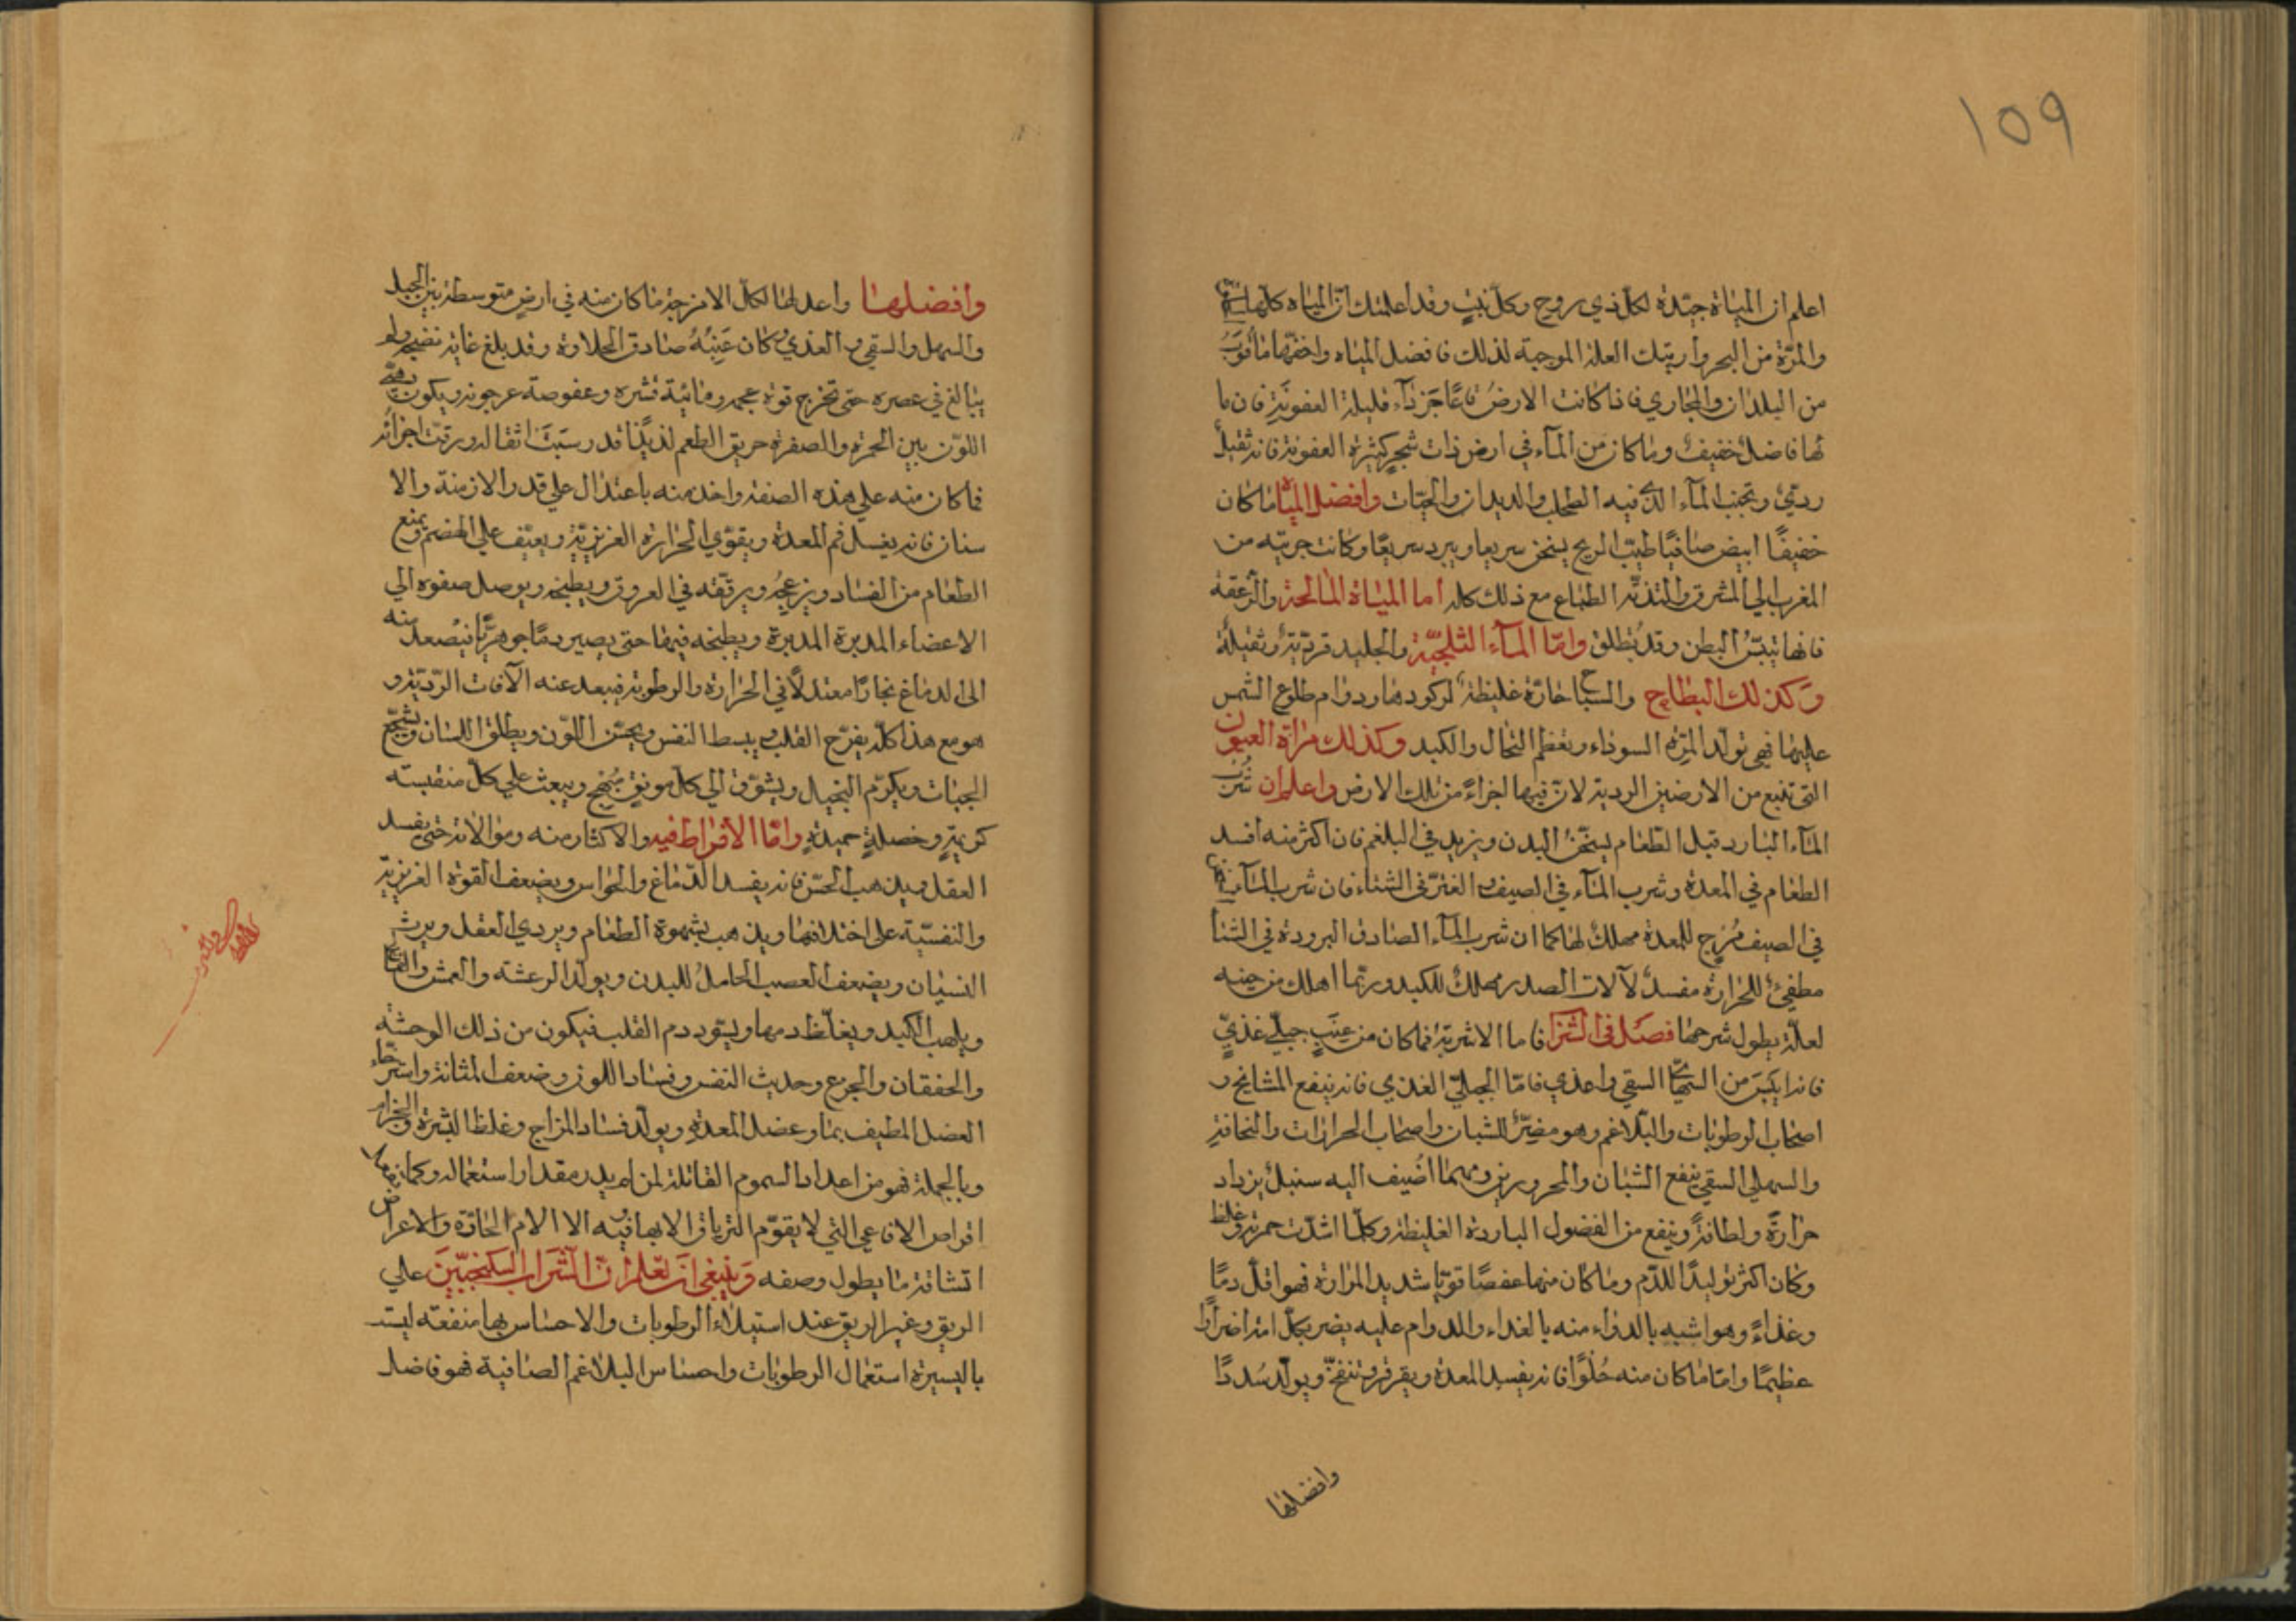 ١٥٩
اعلم ان المياة جيّدة لكلّ ذي روح وكلّ نبتٍ وقد اعلمتك انّ المياه كلّها
والمرّة من البحر واريتك العلة الموجبة لذلك فافضل المياه واخفّها ما قرب
من البلدان والمجاري فاذا كانت الارض قليلة العفونة فان ما
لها فاضلٌ خفيفٌ وما كان من المآء في ارض ذات شجر كثيرة العفونة فانه ثقيلٌ
رديٌ وتجنب المآء الذي فيه الطحلب والديدان والحيّات وافضل المياه ما كان
خفيفًا ابيض صافيًا طيّب الريح يسخن سريعا ويبرد سريعًا وكانت جريته من
المغرب الي المشرق الطباع مع ذلك كله اما المياة المالحة والزعقة
فانها تيبّس البطن وقد تطلق وامّا المآء الثلجيّة والجليد فرديّة وثقيلة
وكذلك البطايح والسباخ حارّة غليظة لركودها ودوام طلوع الشمس
عليها فهي تولّد المرّة السوداء وتعظم الطحال والكبد وكذلك مرارة العيون
التي تنبع من الارضين الردية لانّ فيها اجزاءً من تلك الارض واعلم ان شرب
المآء البارد قبل الطّعام يسخّن البدن ويزيد في البلغم فان اكثر منه افسد
الطعام في المعدة وشرب المآء في الصيف الفترّ في الشتاء فان شرب المآء
في الصيف مُرخٍ للمعدة مهلك لها كما ان شرب المآء الصادق البرودة في الشتا
مطفئٌ للحرارة مفسدٌ لآلات الصدر مهلكٌ للكبد وربّما اهلك من حينه
لعلّة يطول شرحها فصل في الشرا فاما الاشربة فما كان من عنبٍ جبليّ عذيّ
فانه ايبس من السقي واعذي فامّا الجبليّ العذي فانه ينفع المشايخ و
اصحاب الرطوبات والبلاغم وهو مضرّ للشبان واصحاب الحرارات والنحافة
والسهلي السقي ينفع الشبان والمحرورين ومهما اضيف اليه سنبلٌ يزداد
حرارةً ولطافةً وينفع من الفضول الباردة الغليظة وكلّما اشتدّت حمرته وغلظ
وكان اكثر توليدًا للدّم وما كان منها عفصًا قويًا شديد المرارة فهو اقلّ دمًا
وغذاءً وهو اشبه بالدواء منه بالغذاء والدوام عليه يضر بكلّ امر اضرارًا
عظيمًا وامّا ما كان منه حُلوًا فانه يفسد المعدة ويقرقر وينفخ ويولّد سُددًا
وافضلها
وافضلها واعدلها لكلّ الامزجة ما كان منه في ارضٍ متوسطة بين الجبل
والسهل والسقي والعذي وكان عنبه صادق الحلاوة وقد بلغ غاية نضجه ولم
يبالغ في عصره حتى تخرج قوة عجمه ومائية قشره وعفوصة عرجونه ويكون
اللوّن بين الحمرة والصفرة حريق الطعم لذيذًا قد رسبت اثقاله ورقّت اجزائه
فما كان منه علي هذه الصفة واخذ منه باعتدال علي قدر الازمنة والا
سنان فانه يغسل فم المعدة ويقوّي الحرارة الغريزيّة ويعين علي الهضم ويمنع
الطعام من الفساد ويزعجه ويرقّقه في العروق ويطبخه ويوصل صفوه الي
الاعضاء المدبرة المدبرة ويطبخه فيها حتى يصير دمًا جوهريًّا فيصعد منه
الى الدماغ بخارًا معتدلًا في الحرارة والرطوبة فيبعد عنه الآفات الرّديّة و
هو مع هذا كلّه يفرّح القلب ويبسط النفس ويحسّن اللوّن ويطلق اللسان ويشجّع
الجبات ويكرّم البخيل ويشوّق الي كلّ مونق بهج ويبعث علي كلّ منقبة
كريمة وخصلةٍ حميدةٍ وامّا الافراط فيه والاكثار منه وموالاته حتّى يفسد
العقل ويذهب الحسّ فانه يفسد الدّماغ والحواس ويضعف القوة الغريزيّة
والنفسيّة على اختلافها ويذهب بشهوة الطعام ويردي العقل ويرث
النسيان ويضعف العصب الحامل للبدن ويولّد الرعشة والعمش
ويلهب الكبد ويغلّظ دمها ويسّود دم القلب فيكون من ذلك الوحشة
والخفقان والجزع وحديث النفس وفساد اللون وضعف المثانة واسترخاء
العضل المطيف بها وعضل المعدة ويولّد فساد المزاج وغلظ البشرة
وبالجملة فهو من اعداد السموم القاتلة لمن لم يدر مقدار استعماله وكما
اقراص الافاعي التي لا يقوّم الترياق الا بها فيه الا الام الحادّة والاعراض
ما يطول وصفه وينبغي ان تعلم انّ الشراب السكنجبين علي
الريق وغير الريق عند استيلاء الرطوبات والاحساس بها منفعة ليست
باليسيرة استعمال الرطوبات واحساس البلاغم الصافية فهو فاضل